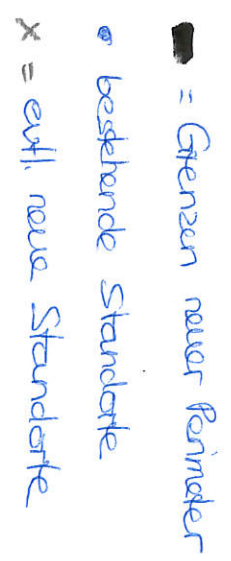 = Grenzen neuer Perimeter
bestehende Standorte
x = evtl. neue Standorte